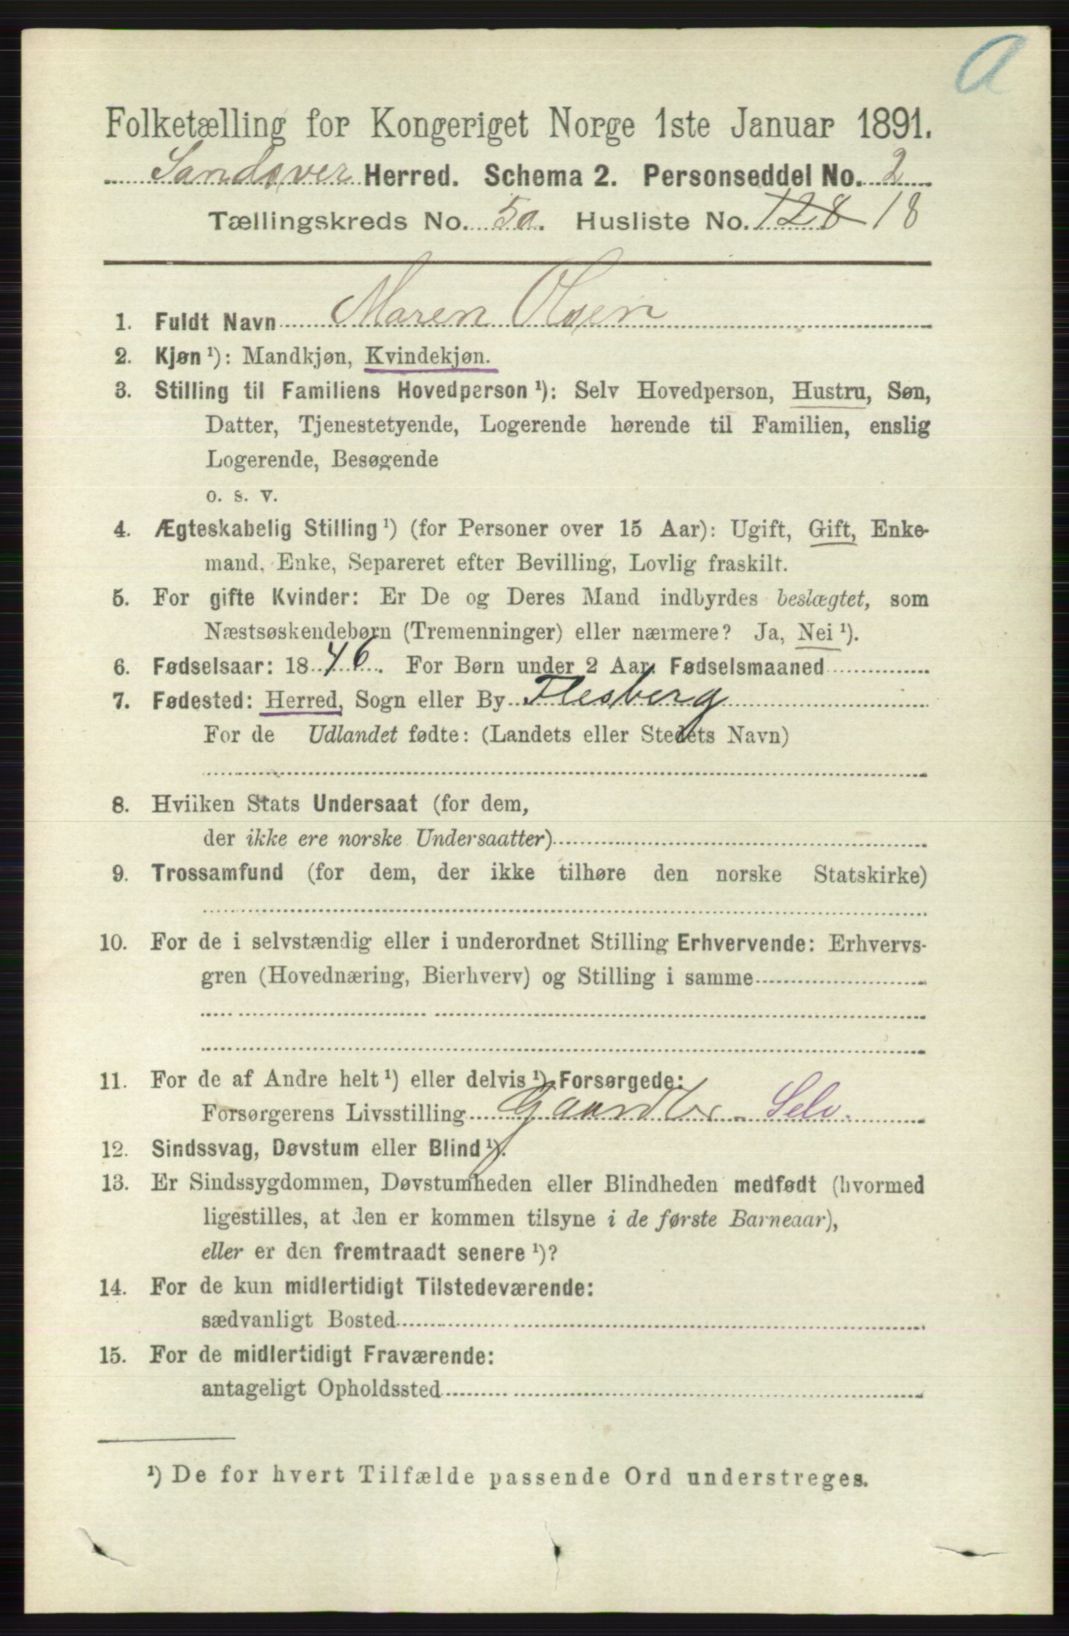 a
Folketælling for Kongeriget Norge 1ste Januar 1891.
Sandsver Herred. Schema 2. Personseddel No. 2
Tællingskreds No. 5a. Husliste No. 128 18
1. Fuldt Navn Maren Olsen
2. Kjøn ¹): Mandkjøn, Kvindekjøn.
3. Stilling til Familiens Hovedperson ¹): Selv Hovedperson, Hustru, Søn,
Datter, Tjenestetyende, Logerende hørende til Familien, enslig
Logerende, Besøgende
o. s. v.
4. Ægteskabelig Stilling ¹) (for Personer over 15 Aar): Ugift, Gift, Enke-
mand, Enke, Separeret efter Bevilling, Lovlig fraskilt.
5. For gifte Kvinder: Er De og Deres Mand indbyrdes beslægtet, som
Næstsøskendebørn (Tremenninger) eller nærmere? Ja, Nei ¹).
6. Fødselsaar: 1846. For Børn under 2 Aar, Fødselsmaaned
7. Fødested: Herred, Sogn eller By Flesberg
For de Udlandet fødte: (Landets eller Stedets Navn)
8. Hviiken Stats Undersaat (for dem,
der ikke ere norske Undersaatter)
9. Trossamfund (for dem, der ikke tilhøre den norske Statskirke)
10. For de i selvstændig eller i underordnet Stilling Erhvervende: Erhvervs-
gren (Hovednæring, Bierhverv) og Stilling i samme
11. For de af Andre helt ¹) eller delvis ¹) Forsørgede:
Forsørgerens Livsstilling Gaardbr. Selv.
12. Sindssvag, Døvstum eller Blind ¹).
13. Er Sindssygdommen, Døvstumheden eller Blindheden medfødt (hvormed
ligestilles, at den er kommen tilsyne i de første Barneaar),
eller er den fremtraadt senere ¹)?
14. For de kun midlertidigt Tilstedeværende:
sædvanligt Bosted
15. For de midlertidigt Fraværende:
antageligt Opholdssted
¹) De for hvert Tilfælde passende Ord understreges.